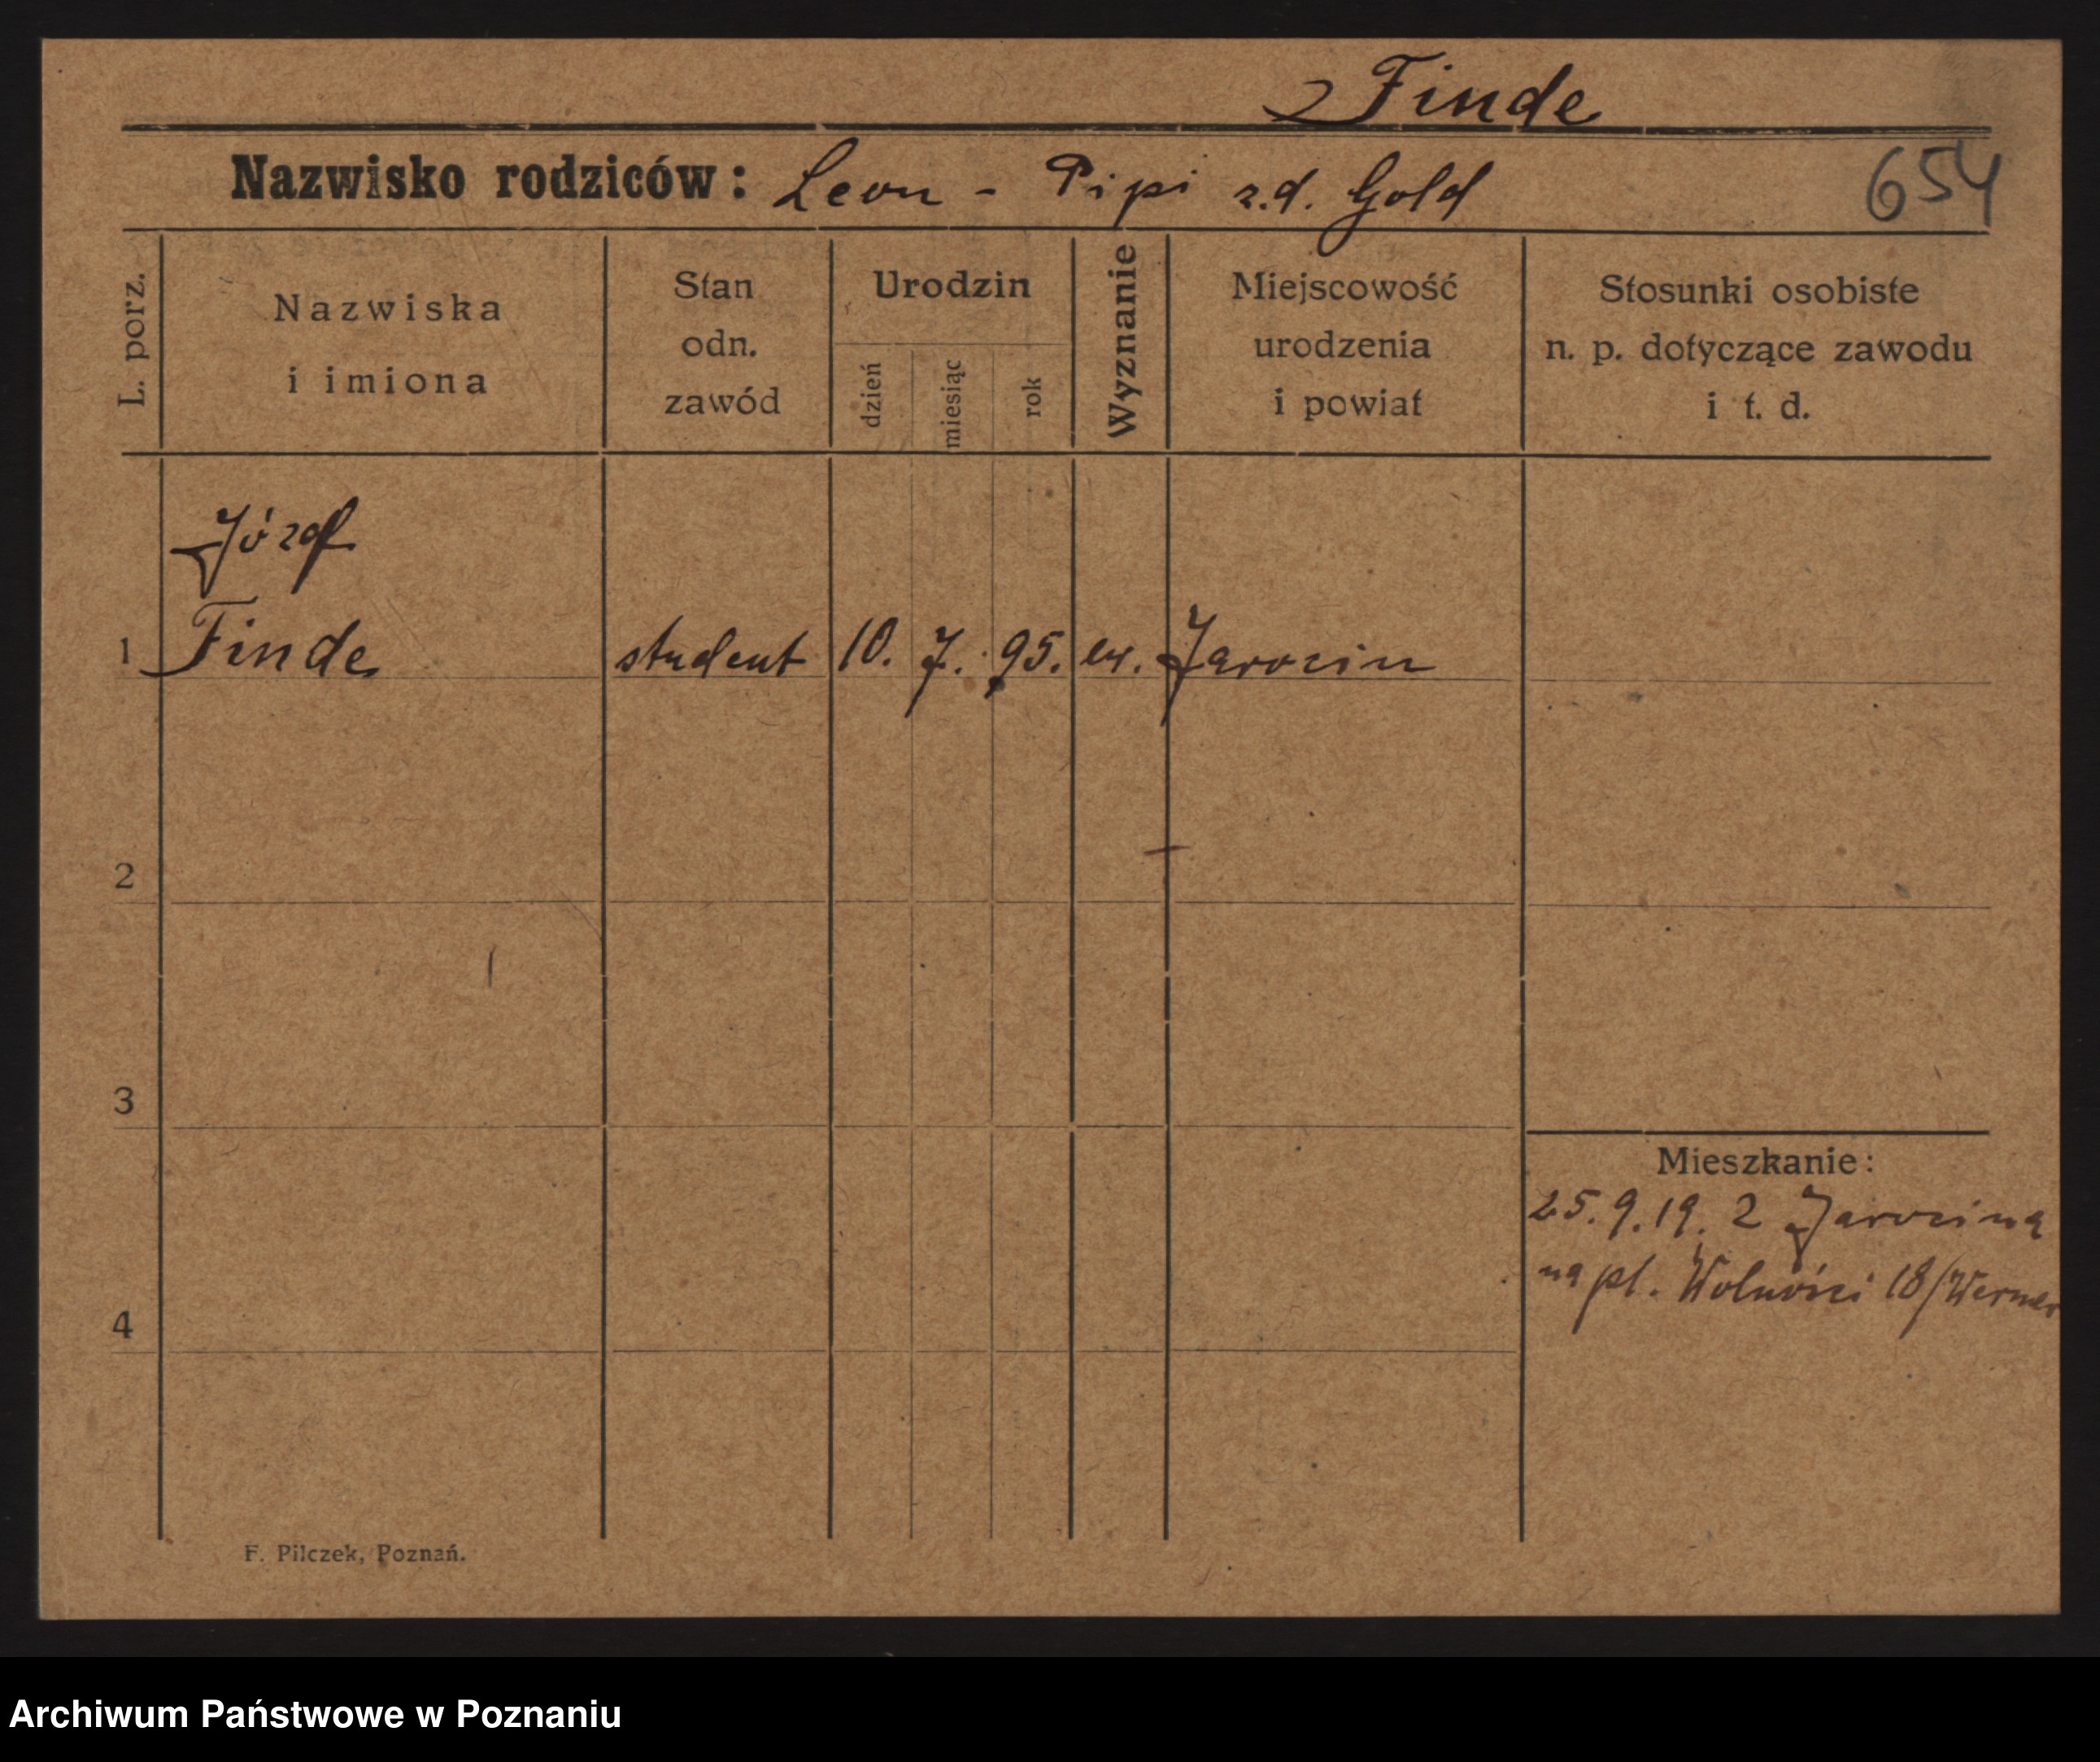 Finde
Nazwisko rodziców: Leon - Pipi z.d. Gold
654
L. porz.
Nazwiska
i imiona
Stan
odn.
zawód
Urodzin
dzień
miesiąc
rok
Wyznanie
Miejscowość
urodzenia
i powiat
Stosunki osobiste
n. p. dotyczące zawodu
i t. d.
Józef
1 Finde student 10. 7. 95. ew. Jarocin
2
3
Mieszkanie:
25.9.19. z Jarocina
na pl. Wolności 18/Werner
4
F. Pilczek, Poznań.
Archiwum Państwowe w Poznaniu